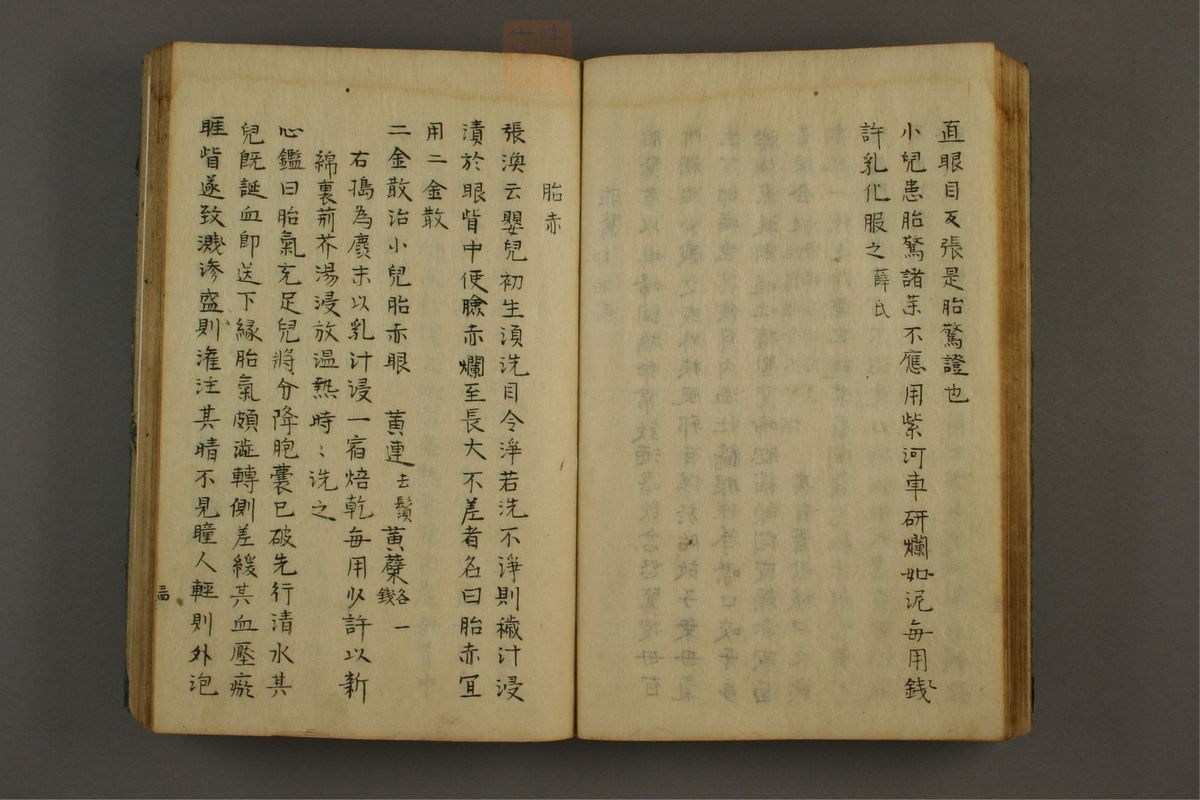 直眼目反張是胎驚證也
小兒患胎驚諸薬不應用紫河車研爛如泥每用錢
許乳化服之 薛氏
胎赤
張渙云嬰兒初生須洗目令淨若洗不淨則穢汁浸
漬於眼眥中使瞼赤爛至長大不差者名曰胎赤宜
用二金散
二金散治小兒胎赤眼 黃連去鬚 黃蘗各一錢
右搗為麄末以乳汁浸一宿焙乾每用少許以新
綿裹荊芥湯浸放溫熱時〻洗之
心鑑曰胎氣充足兒將分降胞囊已破先行清水其
兒既誕血即送下緣胎氣頗澁轉側差緩其血壓瘀
睚眥遂致濺滲盛則潅注其睛不見瞳人輕則外泡
三四